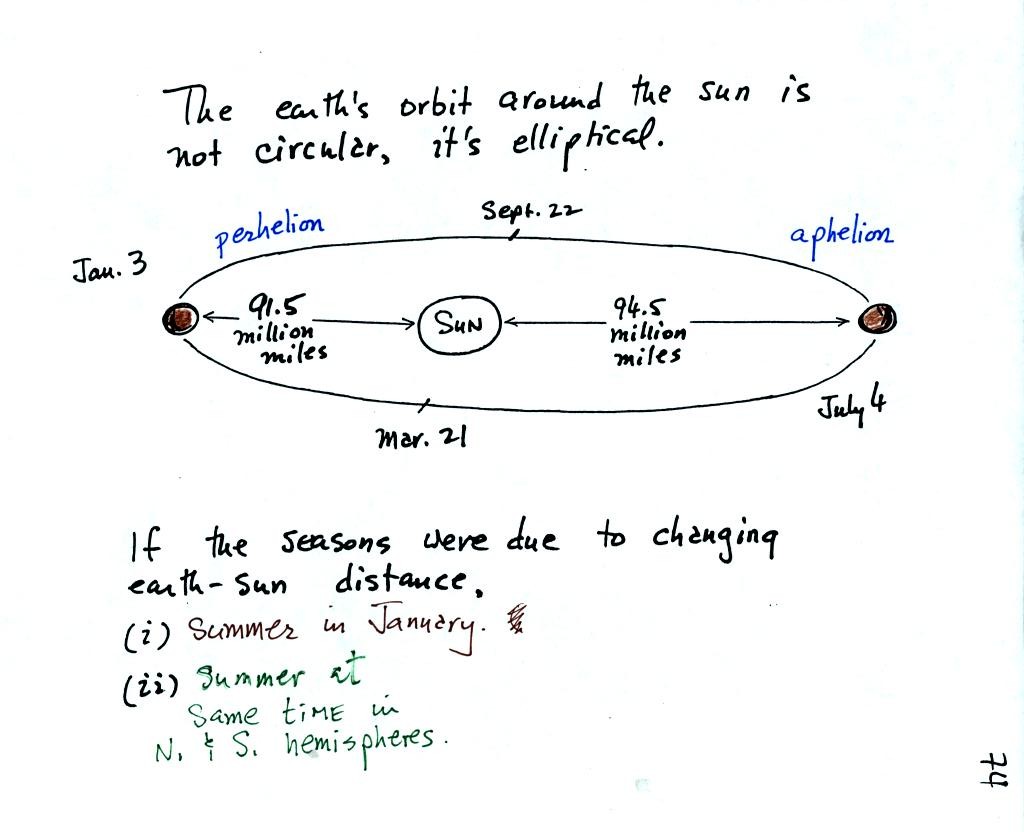 The earth's orbit around the sun is
not circular, it's elliptical.
Sept. 22
perhelion
aphelion
Jan. 3
91.5
million
miles
SUN
94.5
million
miles
July 4
Mar. 21
If the seasons were due to changing
earth-sun distance,
(i) Summer in January.
(ii) Summer at
Same time in
N. & S. hemispheres.
74